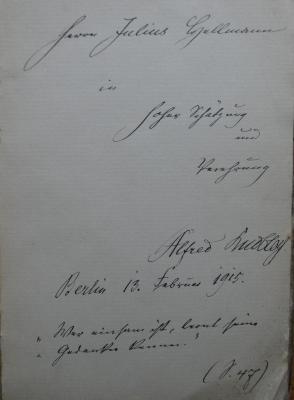 Herrn Julius Hellmann
in
hoher Schätzung
und
Verehrung
Alfred
Berlin 13. Februar 1915.
„Wer einsam ist, lernt seine
„Gedanken kennen."